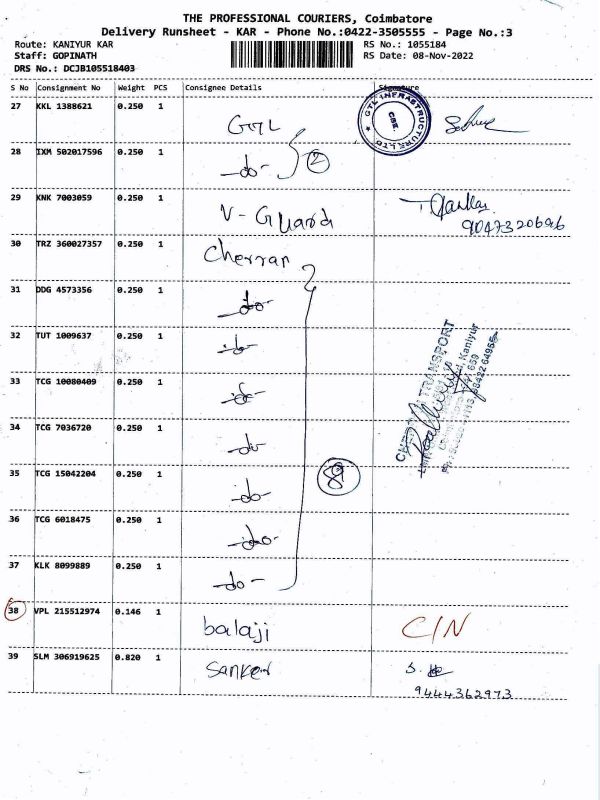 THE PROFESSIONAL COURIERS, Coimbatore
Delivery Runsheet - KAR - Phone No.:0422-3505555 - Page No.:3
Route: KANIYUR KAR RS No.: 1055184
Staff: GOPINATH RS Date: 08-Nov-2022
DRS No.: DCJB105518403
S No Consignment No Weight PCS Consignee Details Signature
27 KKL 1388621 0.250 1 GTL
GTL INFRASTRUCTURE LTD. ★ CBE.
28 IXM 502017596 0.250 1 -do- 2
29 KNK 7003059 0.250 1 V-Guard
9047320696
30 TRZ 360027357 0.250 1 Cherran
31 DDG 4573356 0.250 1 -do-
32 TUT 1009637 0.250 1 -do-
33 TCG 10080409 0.250 1 -do-
34 TCG 7036720 0.250 1 -do-
35 TCG 15042204 0.250 1 -do-
36 TCG 6018475 0.250 1 -do-
37 KLK 8099889 0.250 1 -do-
TRANSPORT
Kaniyur
659
38 VPL 215512974 0.146 1 balaji C/N
39 SLM 306919625 0.820 1 Sanker S.
9444362973